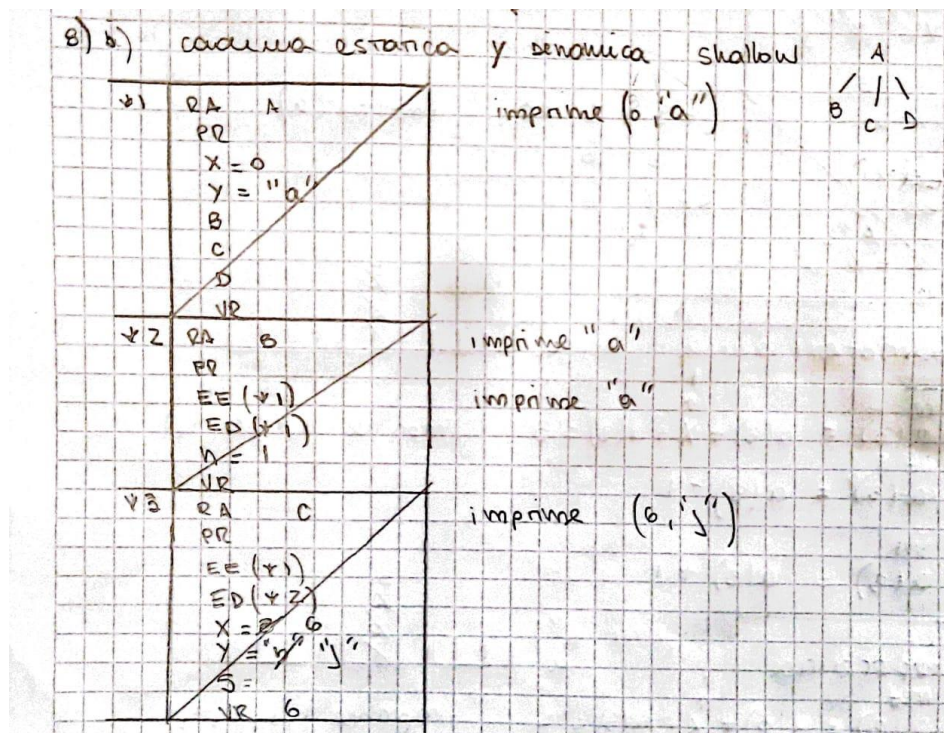 8) b) cadena estatica y dinamica shallow
A
B C D
*1 RA A
PR
X = 0
Y = "a"
B
C
D
VR
imprime (0, "a")
*2 RA B
PR
EE (*1)
ED (*1)
h = 1
VR
imprime "a"
imprime "a"
*3 RA C
PR
EE (*1)
ED (*2)
X = 6
Y = "j"
VR 6
imprime (6, "j")